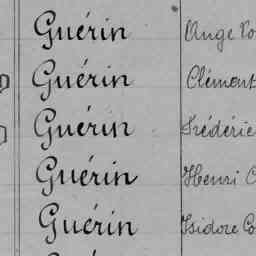 Guérin Ange
Guérin Clément
Guérin Frédéric
Guérin Henri
Guérin Isidore